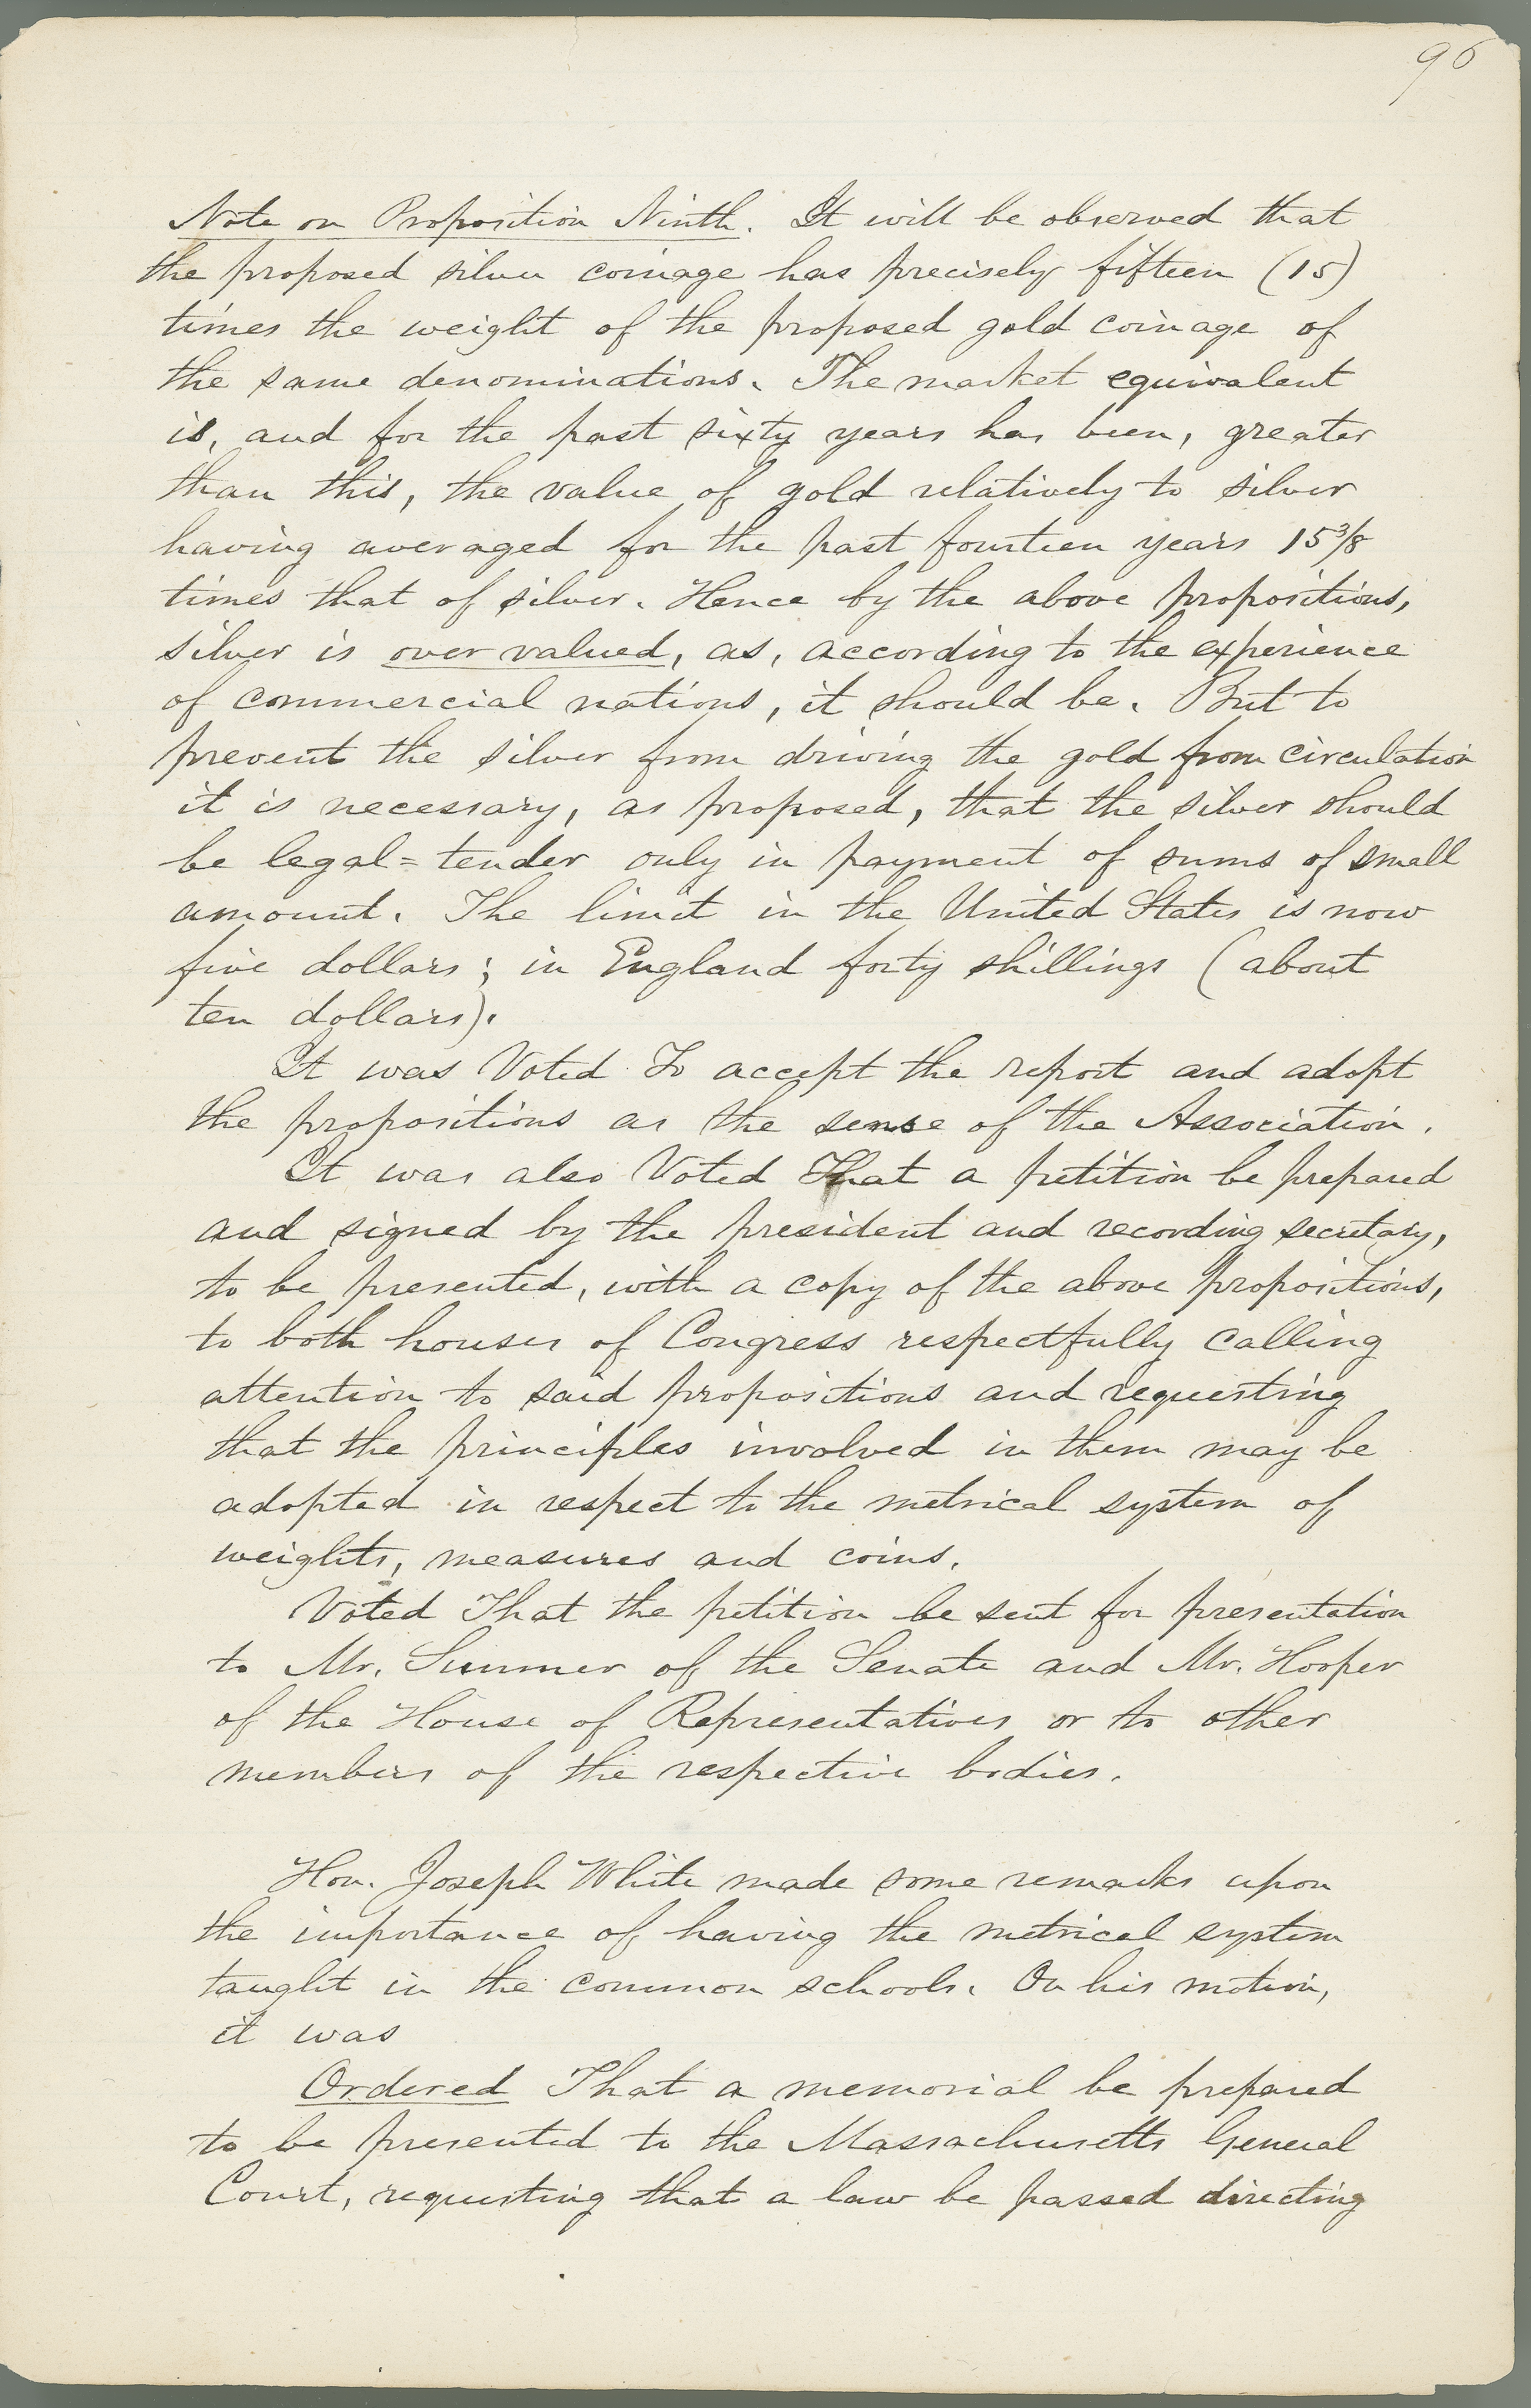 96
Note on Proposition Ninth. It will be observed that
the proposed silver coinage has precisely fifteen (15)
times the weight of the proposed gold coinage of
the same denominations. The market equivalent
is, and for the past sixty years has been, greater
than this, the value of gold relatively to silver
having averaged for the past fourteen years 15 3/8
times that of silver. Hence by the above propositions,
silver is over valued, as, according to the experience
of commercial nations, it should be. But to
prevent the silver from driving the gold from circulation
it is necessary, as proposed, that the silver should
be legal=tender only in payment of sums of small
amount. The limit in the United States is now
five dollars; in England forty shillings (about
ten dollars).
It was Voted To accept the report and adopt
the propositions as the sense of the Association.
It was also Voted That a petition be prepared
and signed by the president and recording secretary,
to be presented, with a copy of the above propositions,
to both houses of Congress respectfully calling
attention to said propositions and requesting
that the principles involved in them may be
adopted in respect to the metrical system of
weights, measures and coins.
Voted That the petition be sent for presentation
to Mr. Sumner of the Senate and Mr. Hooper
of the House of Representatives or to other
members of the respective bodies.
Hon. Joseph White made some remarks upon
the importance of having the metrical system
taught in the common schools. On his motion,
it was
Ordered That a memorial be prepared
to be presented to the Massachusetts General
Court, requesting that a law be passed directing